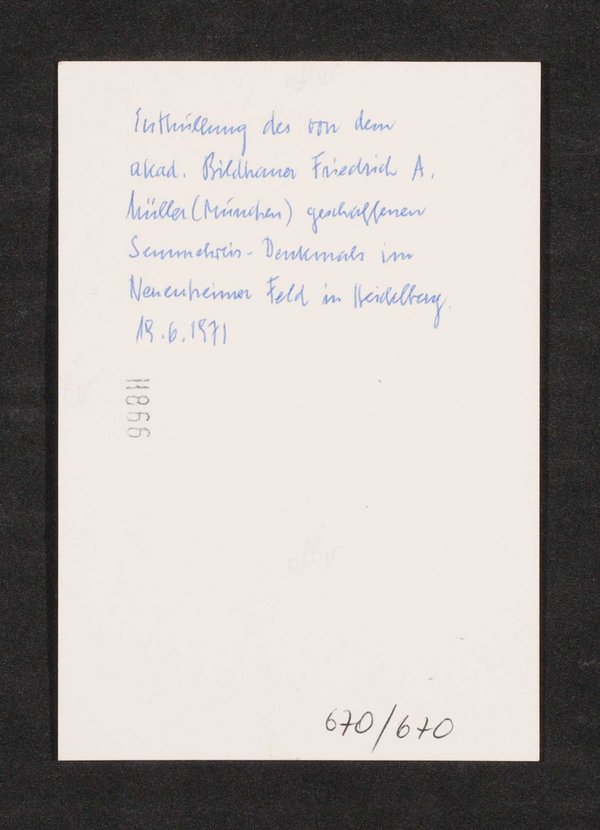 Enthüllung des von dem
akad. Bildhauer Friedrich A.
Müller (München) geschaffenen
Semmelweis-Denkmals im
Neuenheimer Feld in Heidelberg.
19.6.1971
11866
670/670